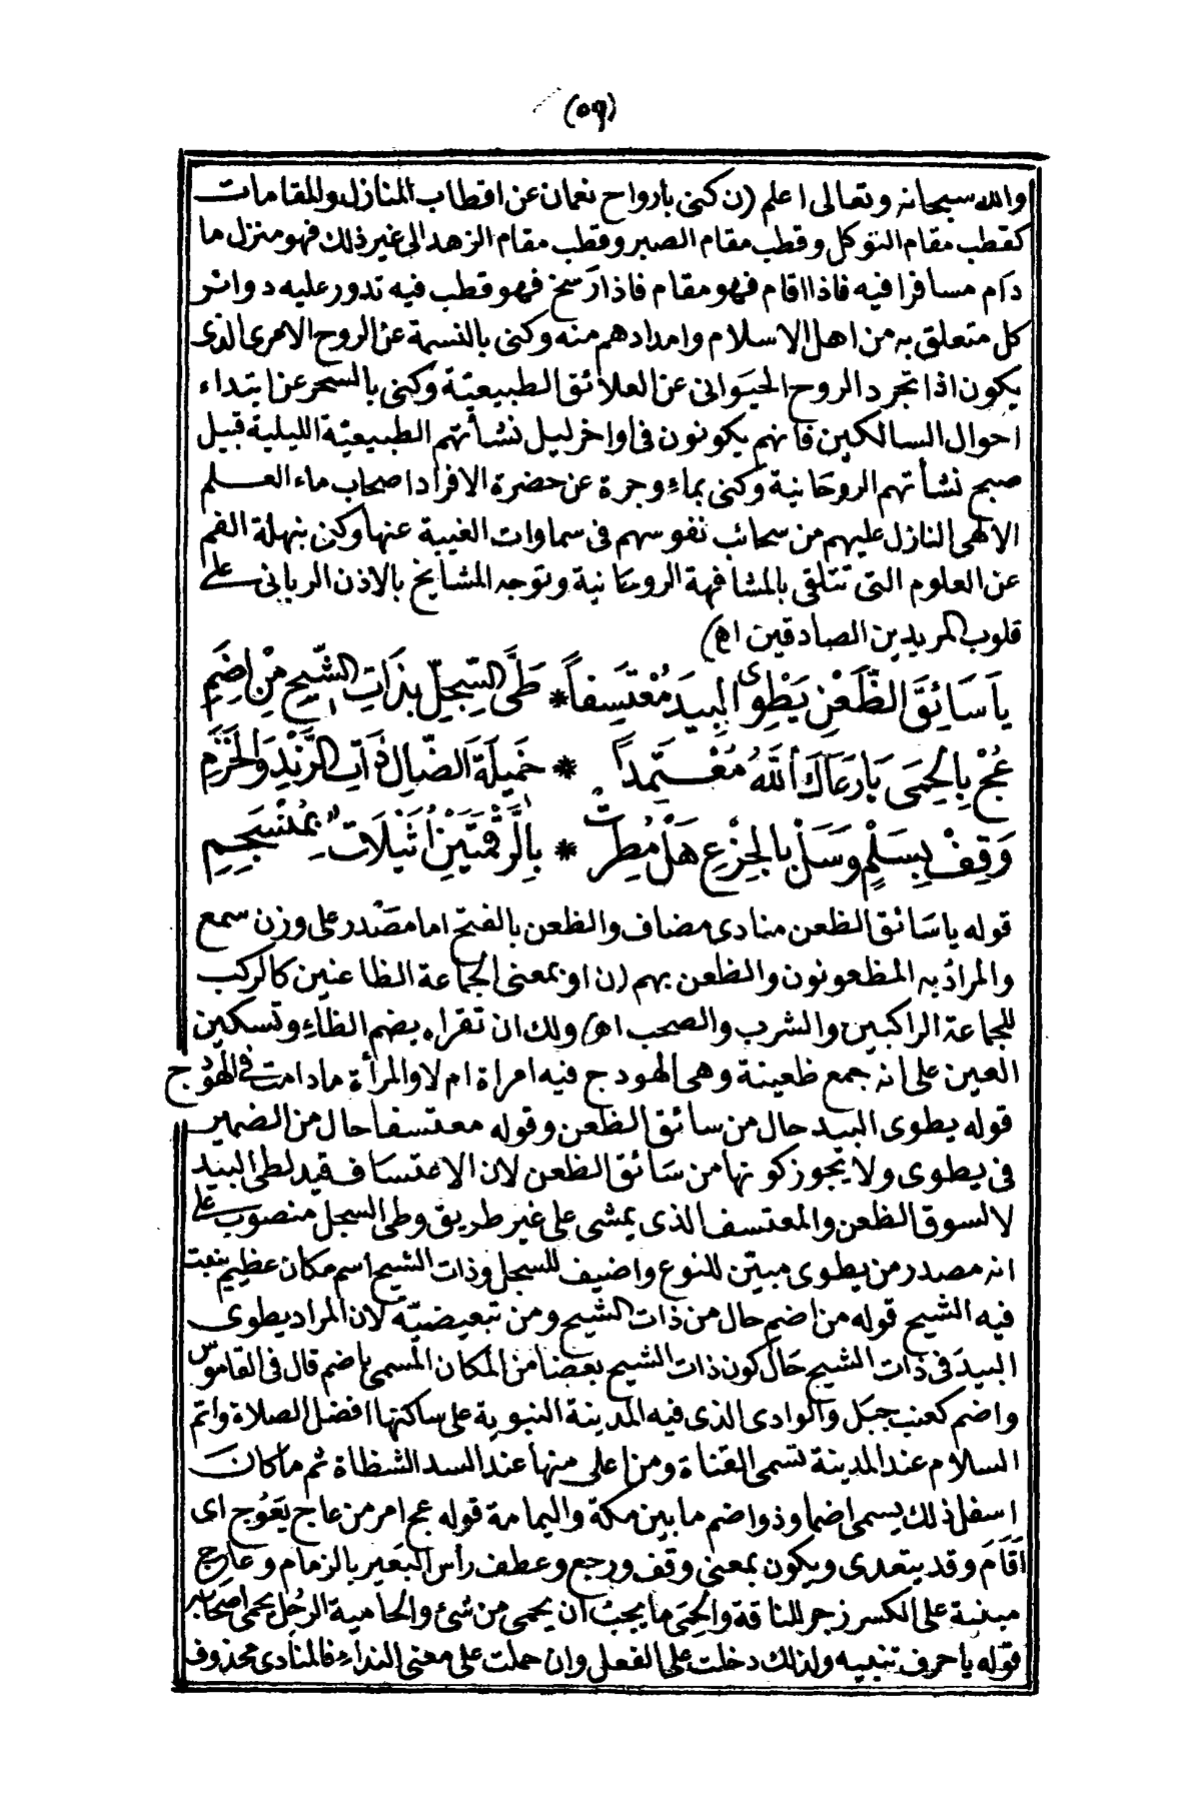 (٥٩)
والله سبحانه وتعالى اعلم (ن كنى بارواح نعمان عن اقطاب المنازل والمقامات
كقطب مقام التوكل وقطب مقام الصبر وقطب مقام الزهد الى غير ذلك فهو منزل ما
دَام مسافرا فيه فاذا اقام فهو مقام فاذا رَسخ فهو قطب فيه تدور عليه دوائر
كل متعلق به من اهل الاسلام وامدادهم منه وكنى بالنسمة عن الروح الامرى الذى
يكون اذا تجرد الروح الحيَوانى عن العلائق الطبيعيّة وكنى بالسحر عن ابتداء
احوال السالكين فانهم يكونون فى اواخر ليل نشأتهم الطبيعيّة الليلية قبيل
صبح نشأتهم الروحَانية وكنى بماء وجرة عن حضرة الافراد اصحاب ماء العـلم
الالهى النازل عليهم من سحائب نفوسهم فى سماوات الغيبة عنها وكن بنهلة الفم
عن العلوم التى تتلقى بالمشافهة الروحَانية وتوجه المشايخ بالاذن الربانى على
قلوب المريدين الصادقين اه)
يَا سَائِقَ الظَّعْنِ يَطْوِى البِيدَ مُعْتَسِفاً * طَىَّ السِّجِلِّ بِذَاتِ الشِّيحِ مِنْ اِضَمِ
عُجْ بِالحِمَى يَا رَعَاكَ اللهُ مُعْـتَمِداً * خَمِيلَةَ الضَّالِ ذَاتَ الرَّنْدِ وَالخُزَمِ
وَقِفْ بِسَلْعٍ وَسَلْ بالجِزْعِ هَلْ مُطِرَتْ * بِالرَّقْمَتَيْنِ اُثَيْلَاتٌ بِمُنْسَجِمِ
قوله يا سَائق الظعن منادى مضاف والظعن بالفتح اما مصْدر على وزن سمع
والمرادُ به المظعونون والظعن بهم (ن او بمعنى الجماعة الظاعنين كالركب
للجماعة الراكبين والشرب والصحب اه) ولك ان تقراه بضم الظاء وتسكين
العين على انه جمع ظعينة وهى الهودج فيه امراة ام لا والمرأة ما دامت فى الهوْدج
قوله يطوى البيد حال من سائق الظعن وقوله معتسفا حال من الضمير
فى يطوى ولا يجوز كونها من سَائق الظعن لان الاعتسَاف قيد لطى البيد
لا لسوق الظعن والمعتسف الذى يمشى على غير طريق وطى السجل منصوب على
انه مصدر من يطوى مبيّن للنوع واضيف للسجل وذات الشيح اسم مكان عظيم ينبت
فيه الشيح قوله من اضم حال من ذات الشيح ومن تبعيضيّة لان المراد يطوى
البيدَ فى ذات الشيح حَال كون ذات الشيح بعضا من المكان المسمى باضم قال فى القاموس
واضم كعنب جبَل والوادى الذى فيه المدينة النبوية على ساكنها افضل الصلاة واتم
السلام عند المدينة تسمى القناة ومن اعلى منها عند السد الشظاة ثم ما كانَ
اسفل ذلك يسمى اضما وذو اضم ما بين مكة واليمامة قوله عج امر من عاج يَعُوج اى
اَقَامَ وقد يتعدى ويكون بمعنى وقف ورجع وعطف رأس البَعير بالزمام وعاج
مبنية على الكسر زجر للناقة والحِمَى ما يجبُ ان يحمى من شئ والحامية الرجُل يحمى اصحَابه
قوله يا حرف تنبيه ولذلك دخلت على الفعل وان حملت على معنى النداء فالمنادى محذوف